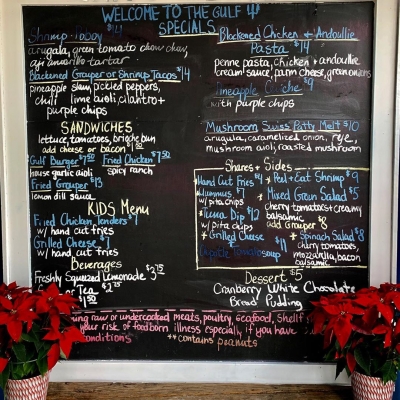 WELCOME TO THE GULF
SPECIALS
Shrimp Poboy $14
arugula, green tomato chow chow,
aji amarillo tartar
Blackened Grouper or Shrimp Tacos $14
pineapple slaw, pickled peppers,
chili lime aioli, cilantro +
purple chips
SANDWICHES
lettuce, tomatoes, brioche bun
add cheese or bacon $1.50
Gulf Burger $7.50
house garlic aioli
Fried Chicken $7.50
spicy ranch
Fried Grouper $13
lemon dill sauce
KIDS Menu
Fried Chicken Tenders $7
w/ hand cut fries
Grilled Cheese $7
w/ hand cut fries
Beverages
Freshly Squeezed Lemonade $2.75
or Tea $2.75
$1.50
Blackened Chicken & Andouille
Pasta $14
penne pasta, chicken + andouille
cream sauce, parm cheese, green onions
Pineapple Quiche $9
with purple chips
Mushroom Swiss Patty Melt $10
arugula, caramelized onion, rye,
mushroom aioli, roasted mushroom
Shares + Sides
Hand Cut Fries $4
Hummus $7
w/ pita chips
Tuna Dip $12
w/ pita chips
Grilled Cheese +
Tomato Soup $11
Peel + Eat Shrimp $9
Mixed Green Salad $5
cherry tomatoes + creamy
balsamic
add Grouper $8
Spinach Salad $8
cherry tomatoes,
mozzarella, bacon
balsamic
Dessert $5
Cranberry White Chocolate
Bread Pudding
raw or undercooked meats, poultry, seafood, shell
your risk of foodborn illness especially if you have
conditions
**contains peanuts